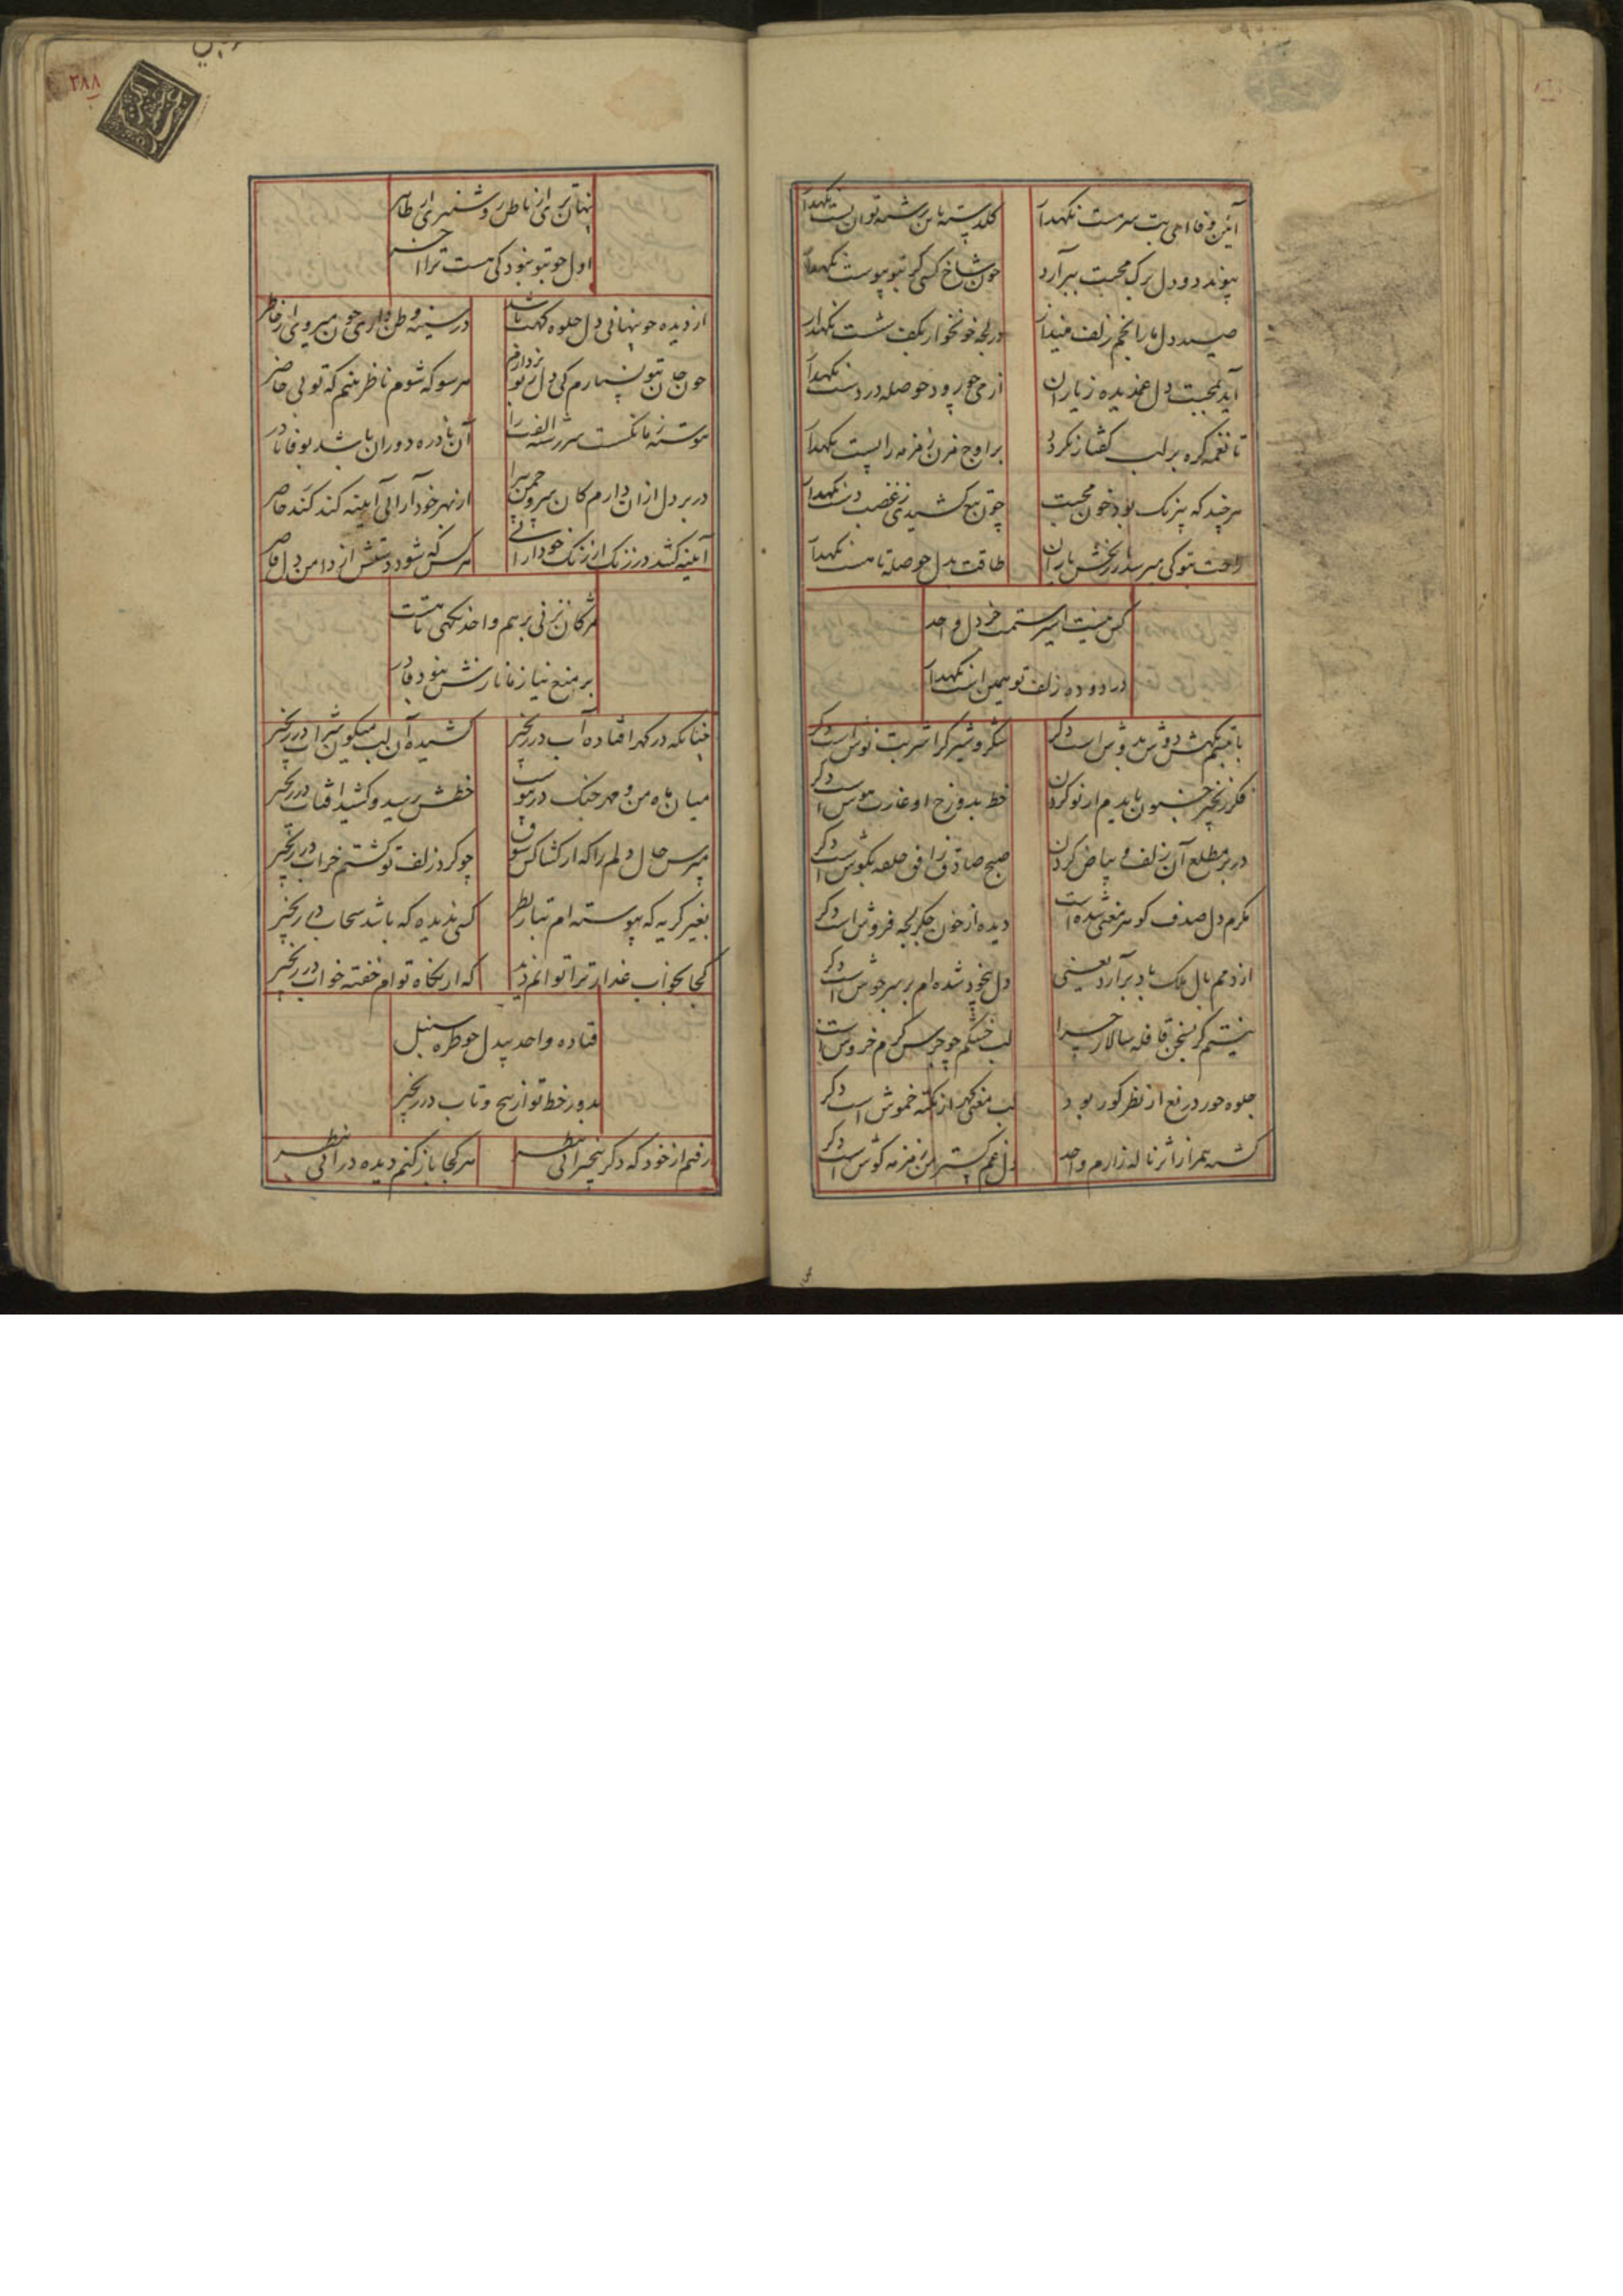 آئین وفا ای بت سرمست نگهدار
گلدسته باین رشته توان بست نگهدار
پیوند دو دل برگ محبت ببر آرد
چون شاخ کسی کز تو پیوست نگهدار
صید دل ما را بخم زلف مینداز
در لجه خونخوار بکف شست نگهدار
آید بمحبت دل غمدیده ز یاران
از می چو رود حوصله در دست نگهدار
تا نغمه گره بر لب گفتار نگردد
بر اوج مزن زمزمه را پست نگهدار
هرچند که بیرنگ بود خون محبت
چون تیغ کشیدی ز غضب دست نگهدار
راحت بتو کی میرسد از بخشش یاران
طاقت بدل حوصله تا هست نگهدار
کس نیست اسیر ستمت جز دل واحد
در دوده زلف تو همین است نگهدار
با تبسم نگهش دوش بدوش است دگر
شکر و شیر کرا شربت نوش است دگر
خط بدور رخ او غارت هوش است دگر
در بر مطلع آن زلف بیاض گردن
صبح صادق ز افق حلقه بگوش است دگر
مکرم دل صدف گوهر معنی شده است
دیده از خون جگر لجه فروش است دگر
از دمم بال ملک باد برآرد یعنی
دل بیخود شده ام بر سر جوش است دگر
نیستم گر بسخن قافله سالار چرا
لب خشکم چو جرس گرم خروش است دگر
جلوه حور دریغ از نظر کور بود
لب معنی گهر از نکته خموش است دگر
گشت همراز اثر ناله زارم واحد
۲۸۸
پنهان تری از باطن روشنتری از ظاهر
اول چو تو نبود کی هست ترا آخر
از دیده چو پنهانی دل جلوه گهت باشد
در سینه وطن داری چون میروی از خاطر
چون جان بتو نسپارم کی دل ز تو بردارم
هر سو که شوم ناظر بینم که تویی حاضر
پیوسته ز ما نگسست سررشته الفت را
آن نادره دوران باشد بوفا نادر
در بر دل از آن دارم کان سرو چمن پیرا
از بهر خودآرایی آیینه کند حاضر
آیینه کشد در زنگ از رنگ خودآرایی
هر کس که شود دستش از دامن دل قاصر
مژگان نزنی برهم واحد نگهی تا هست
بر منع نیاز ما نازش نبود قادر
چنانکه در گهر افتاده آب در زنجیر
کشیده آن لب میگون شراب در زنجیر
میان ماه من و مهر جنگ در پیوست
خطش رسید و کشید آفتاب در زنجیر
مپرس حال دلم را که از کشاکش شوق
چو گرد زلف تو گشتم خراب در زنجیر
بغیر گریه که پیوسته ام بتار نظر
کسی ندیده که باشد سحاب در زنجیر
کجا بخواب عذار ترا توانم دید
که از نگاه توام خفته خواب در زنجیر
فتاده واحد بیدل چو طره سنبل
بدور خط تو از پیچ و تاب در زنجیر
رفتم از خود که دگر بیخبر آئی بنظر
هر کجا باز کنم دیده در آئی بنظر